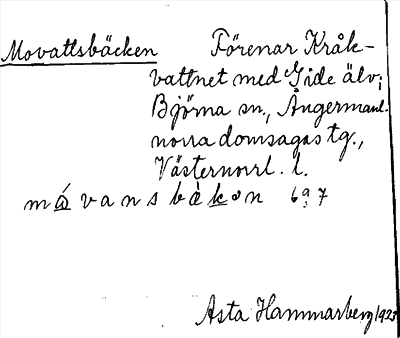 Movattsbäcken Förenar Kråk-
vattnet med Gide älv;
Björna sn., Ångermanl.
norra domsagas tg.,
Västernorrl. l.
måvansbäkɘn 6 a: 7
Asta Hammarberg 1923